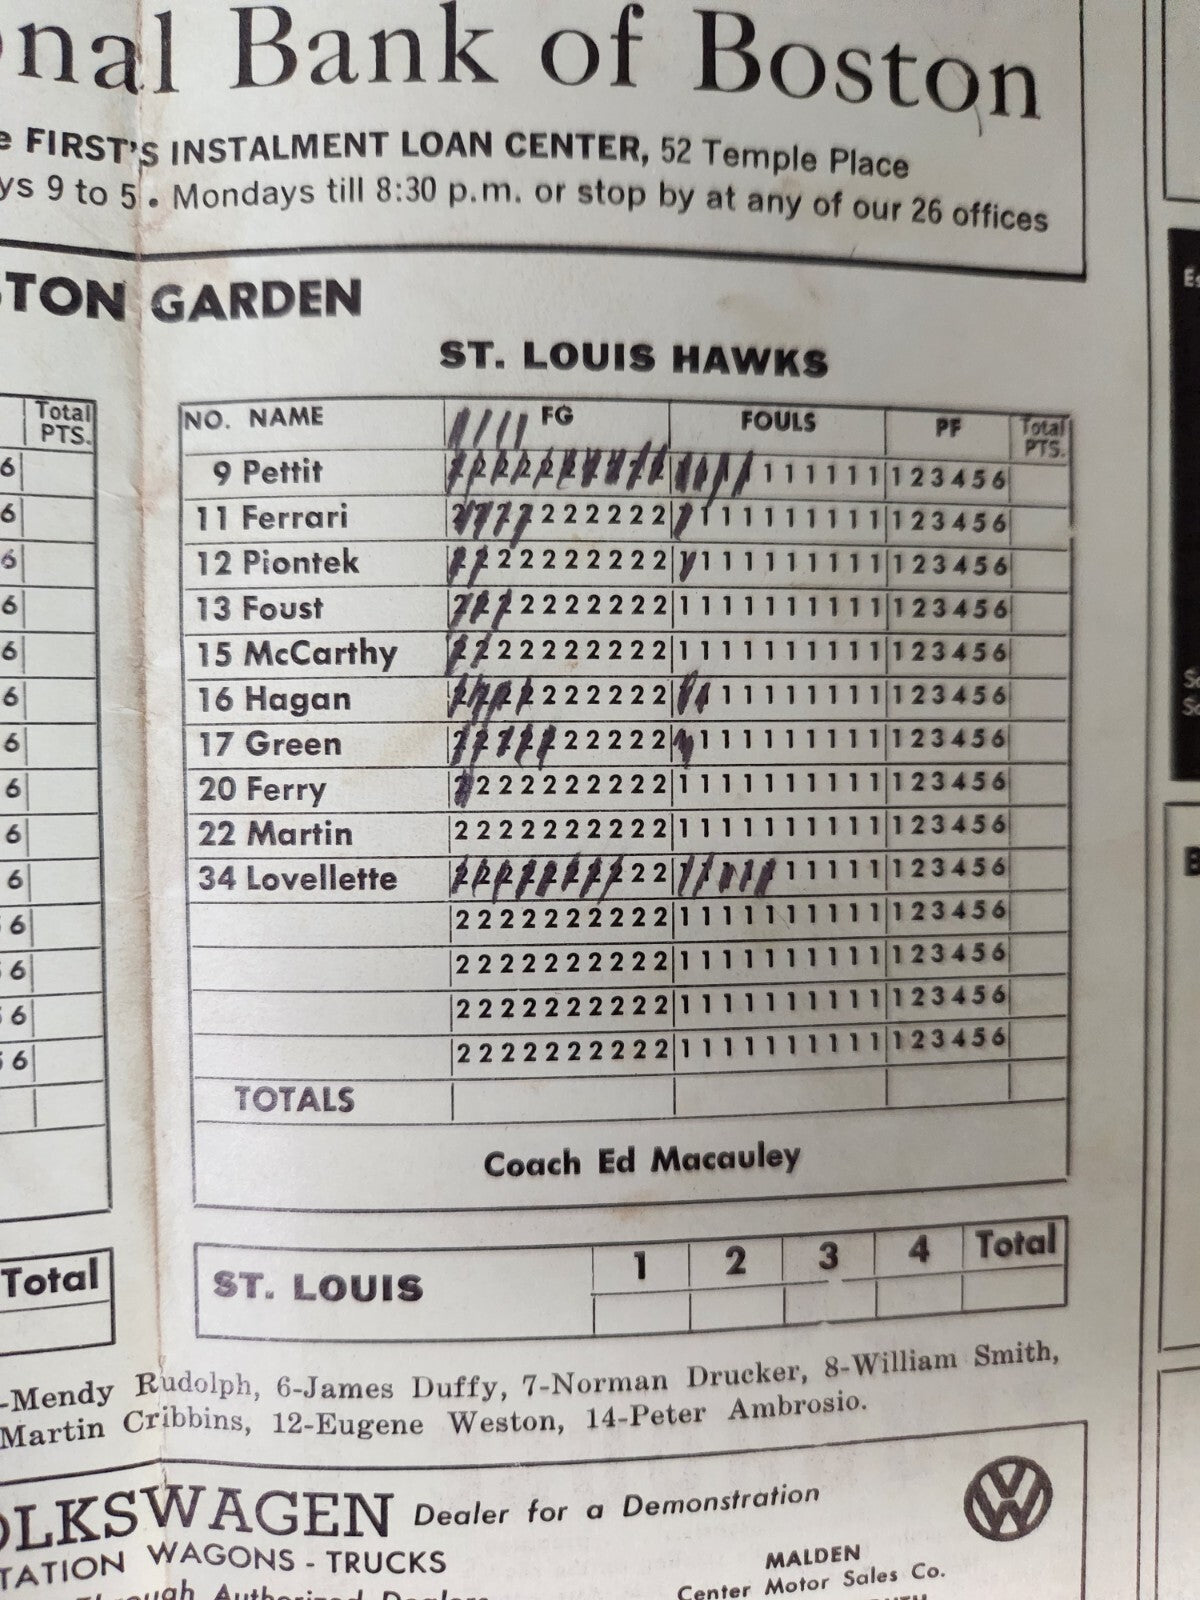 onal Bank of Boston
e FIRST'S INSTALMENT LOAN CENTER, 52 Temple Place
ys 9 to 5 • Mondays till 8:30 p.m. or stop by at any of our 26 offices
STON GARDEN
ST. LOUIS HAWKS
Total PTS.
NO. NAME FG FOULS PF Total PTS.
6 9 Pettit 2 2 2 2 2 2 2 2 2 2 1 1 1 1 1 1 1 1 1 1 1 2 3 4 5 6
6 11 Ferrari 2 2 2 2 2 2 2 2 2 2 1 1 1 1 1 1 1 1 1 1 1 2 3 4 5 6
6 12 Piontek 2 2 2 2 2 2 2 2 2 2 1 1 1 1 1 1 1 1 1 1 1 2 3 4 5 6
6 13 Foust 2 2 2 2 2 2 2 2 2 2 1 1 1 1 1 1 1 1 1 1 1 2 3 4 5 6
6 15 McCarthy 2 2 2 2 2 2 2 2 2 2 1 1 1 1 1 1 1 1 1 1 1 2 3 4 5 6
6 16 Hagan 2 2 2 2 2 2 2 2 2 2 1 1 1 1 1 1 1 1 1 1 1 2 3 4 5 6
6 17 Green 2 2 2 2 2 2 2 2 2 2 1 1 1 1 1 1 1 1 1 1 1 2 3 4 5 6
6 20 Ferry 2 2 2 2 2 2 2 2 2 2 1 1 1 1 1 1 1 1 1 1 1 2 3 4 5 6
6 22 Martin 2 2 2 2 2 2 2 2 2 2 1 1 1 1 1 1 1 1 1 1 1 2 3 4 5 6
6 34 Lovellette 2 2 2 2 2 2 2 2 2 2 1 1 1 1 1 1 1 1 1 1 1 2 3 4 5 6
6 2 2 2 2 2 2 2 2 2 2 1 1 1 1 1 1 1 1 1 1 1 2 3 4 5 6
6 2 2 2 2 2 2 2 2 2 2 1 1 1 1 1 1 1 1 1 1 1 2 3 4 5 6
6 2 2 2 2 2 2 2 2 2 2 1 1 1 1 1 1 1 1 1 1 1 2 3 4 5 6
6 2 2 2 2 2 2 2 2 2 2 1 1 1 1 1 1 1 1 1 1 1 2 3 4 5 6
TOTALS
Coach Ed Macauley
Total
ST. LOUIS 1 2 3 4 Total
-Mendy Rudolph, 6-James Duffy, 7-Norman Drucker, 8-William Smith,
Martin Cribbins, 12-Eugene Weston, 14-Peter Ambrosio.
OLKSWAGEN Dealer for a Demonstration
TATION WAGONS - TRUCKS
Through Authorized Dealers
MALDEN
Center Motor Sales Co.